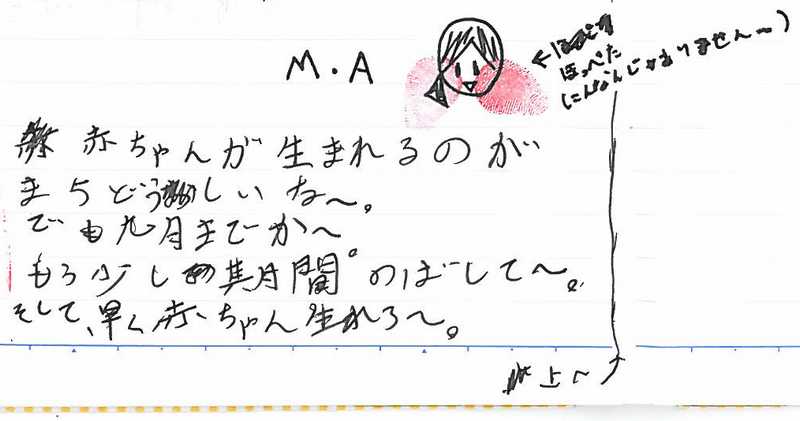 M.A
←ほっぺた
こんなんじゃありませんー)
赤ちゃんが生まれるのが
まちどうしいな〜。
でも九月までか〜
もう少し期間のばして〜。
そして、早く赤ちゃん生れろ〜。
上へ